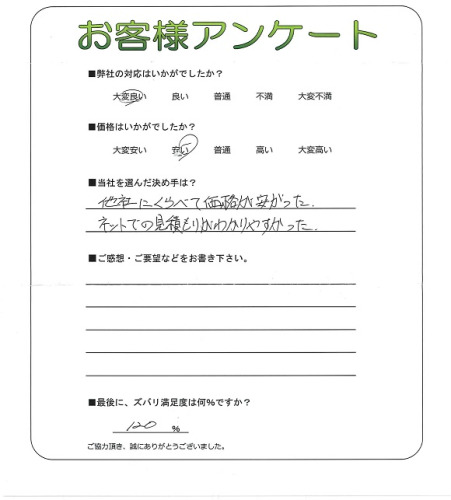 お客様アンケート
■弊社の対応はいかがでしたか？
大変良い 良い 普通 不満 大変不満
■価格はいかがでしたか？
大変安い 安い 普通 高い 大変高い
■当社を選んだ決め手は？
他社にくらべて価格が安かった.
ネットでの見積もりがわかりやすかった.
■ご感想・ご要望などをお書き下さい。
■最後に、ズバリ満足度は何%ですか？
120 %
ご協力頂き、誠にありがとうございました。